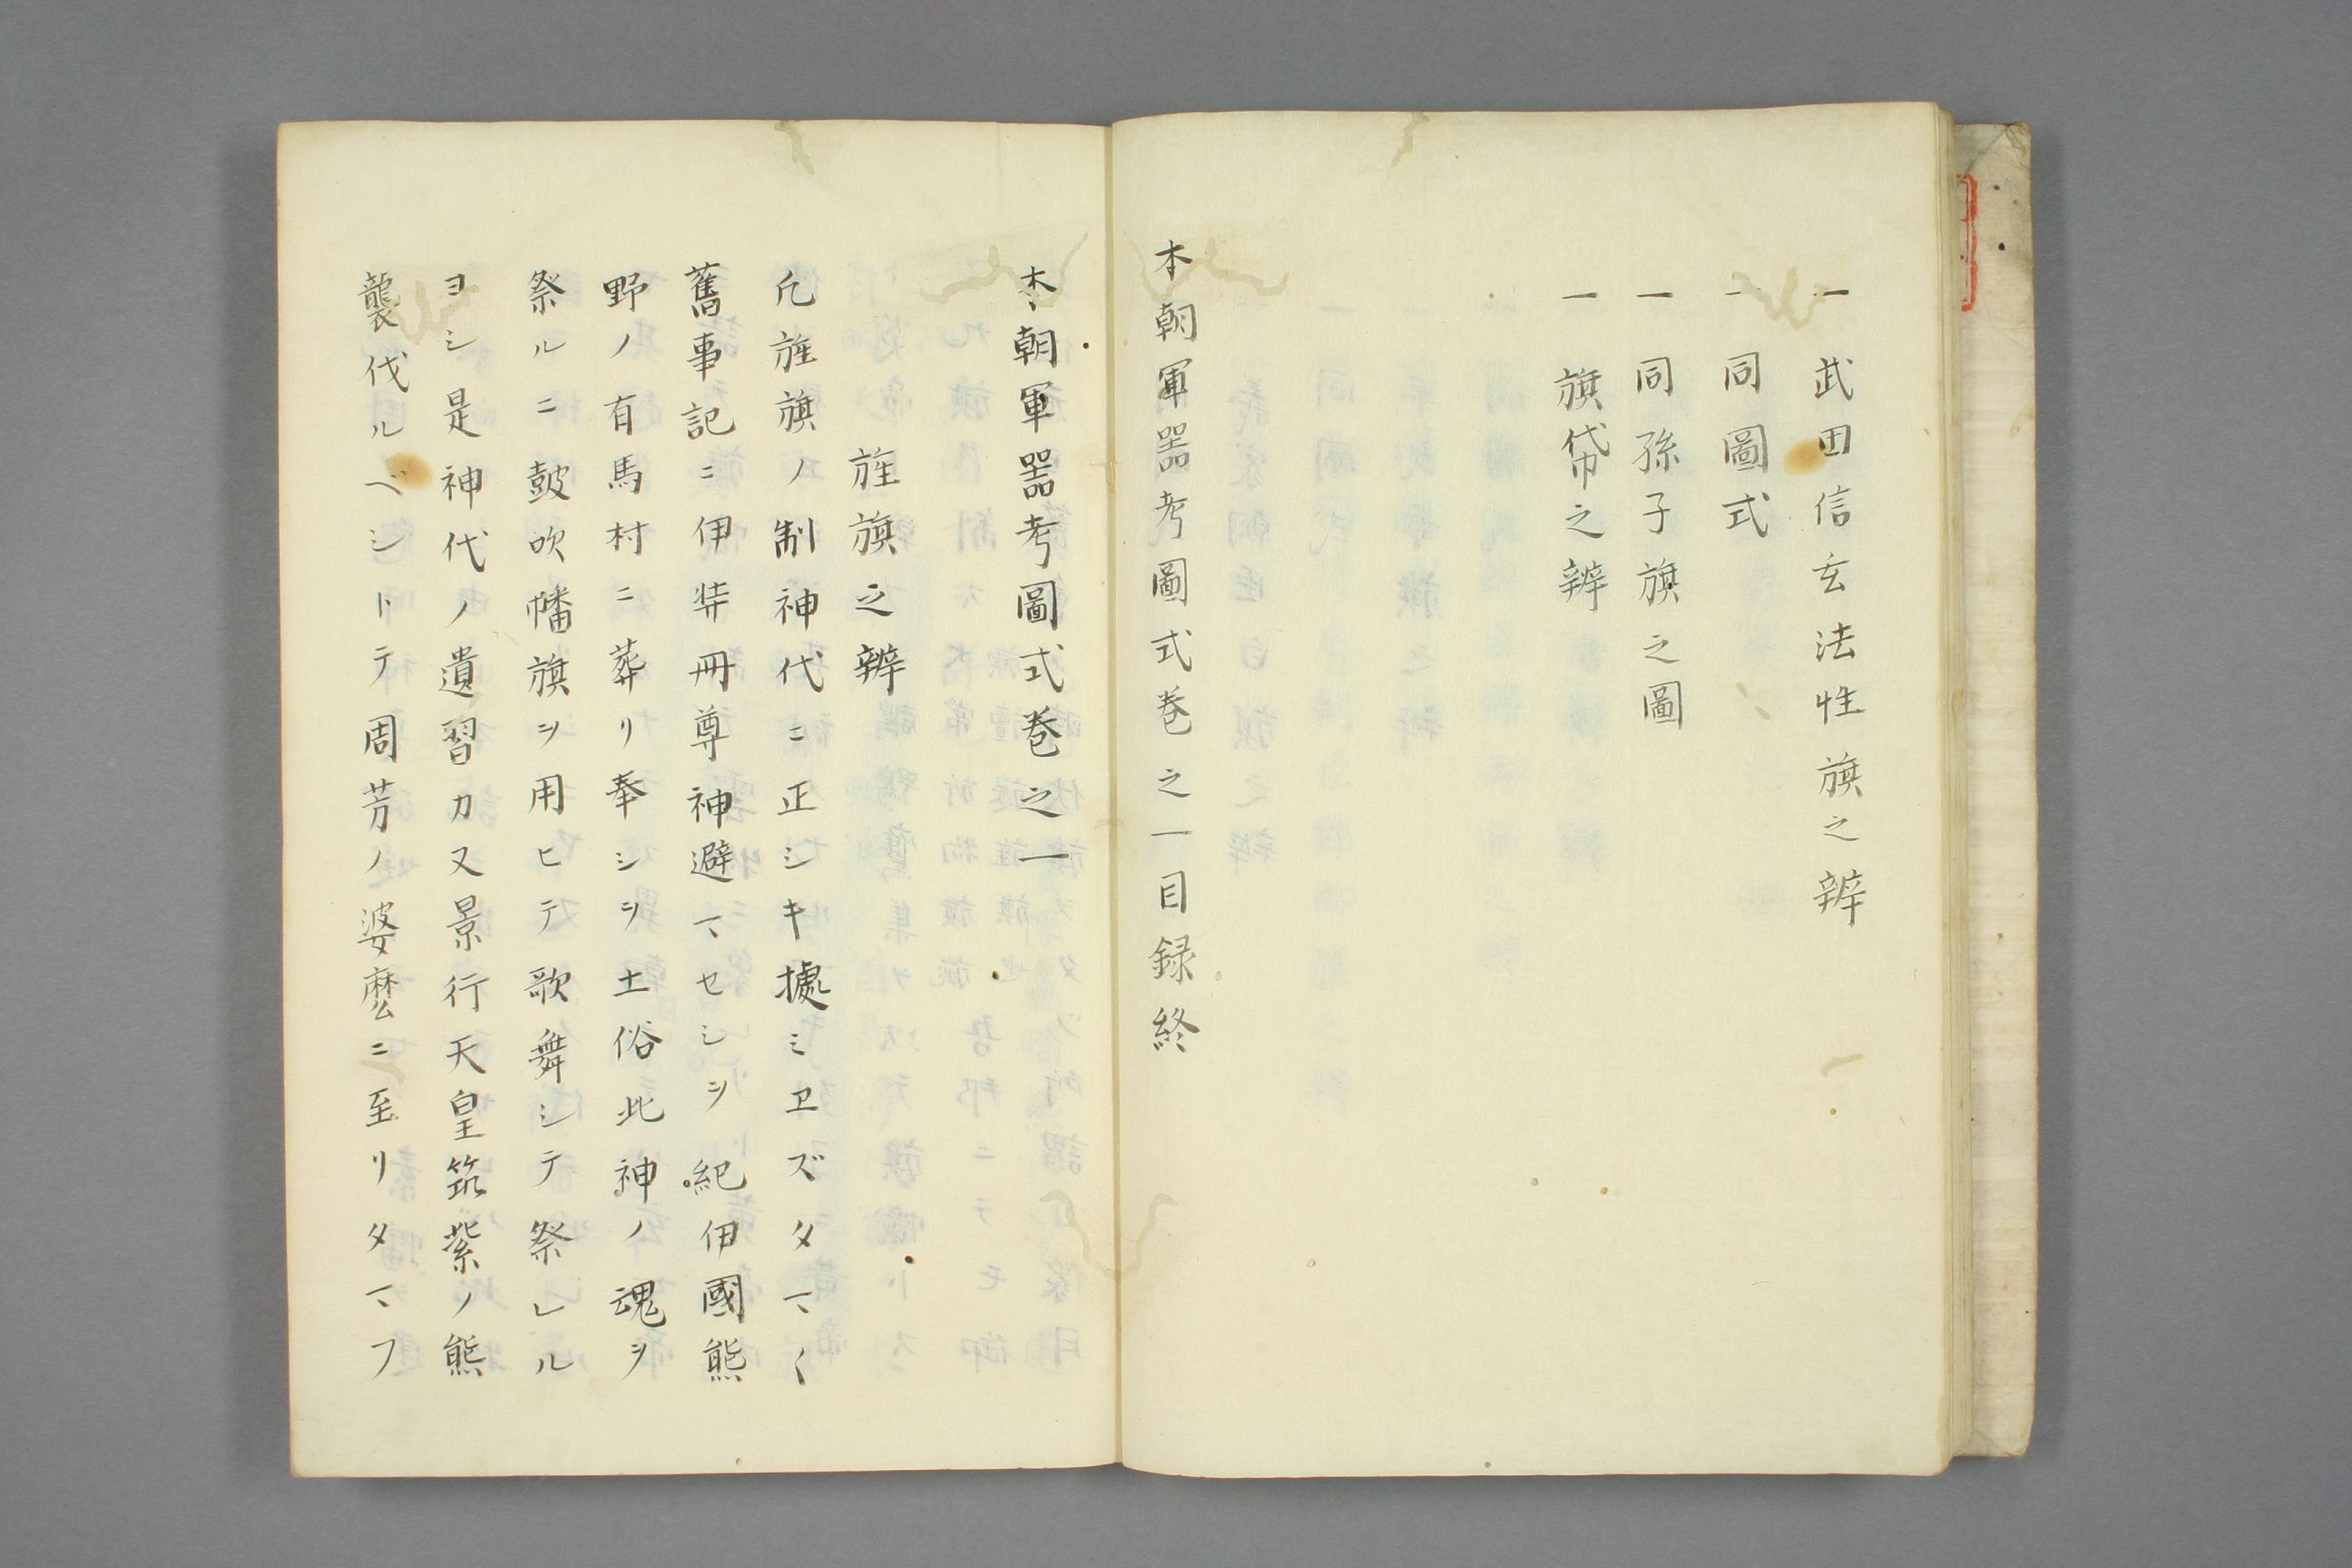 一 武田信玄法性旗之辨
一 同圖式
一 同孫子旗之圖
一 旗帒之辨
本朝軍器考圖式巻之一目録終
本朝軍器考圖式巻之一
旌旗之辨
凡旌旗ノ制神代ニ正シキ據ミヱズタマ〱
舊事記ニ伊弉冊尊神避マセシヲ紀伊國熊
野ノ有馬村ニ葬リ奉シヲ土俗此神ノ魂ヲ
祭ルニ鼓吹幡旗ヲ用ヒテ歌舞シテ祭レル
ヨシ是神代ノ遺習カ又景行天皇筑紫ノ熊
襲伐ルベシトテ周芳ノ婆麼ニ至リタマフ